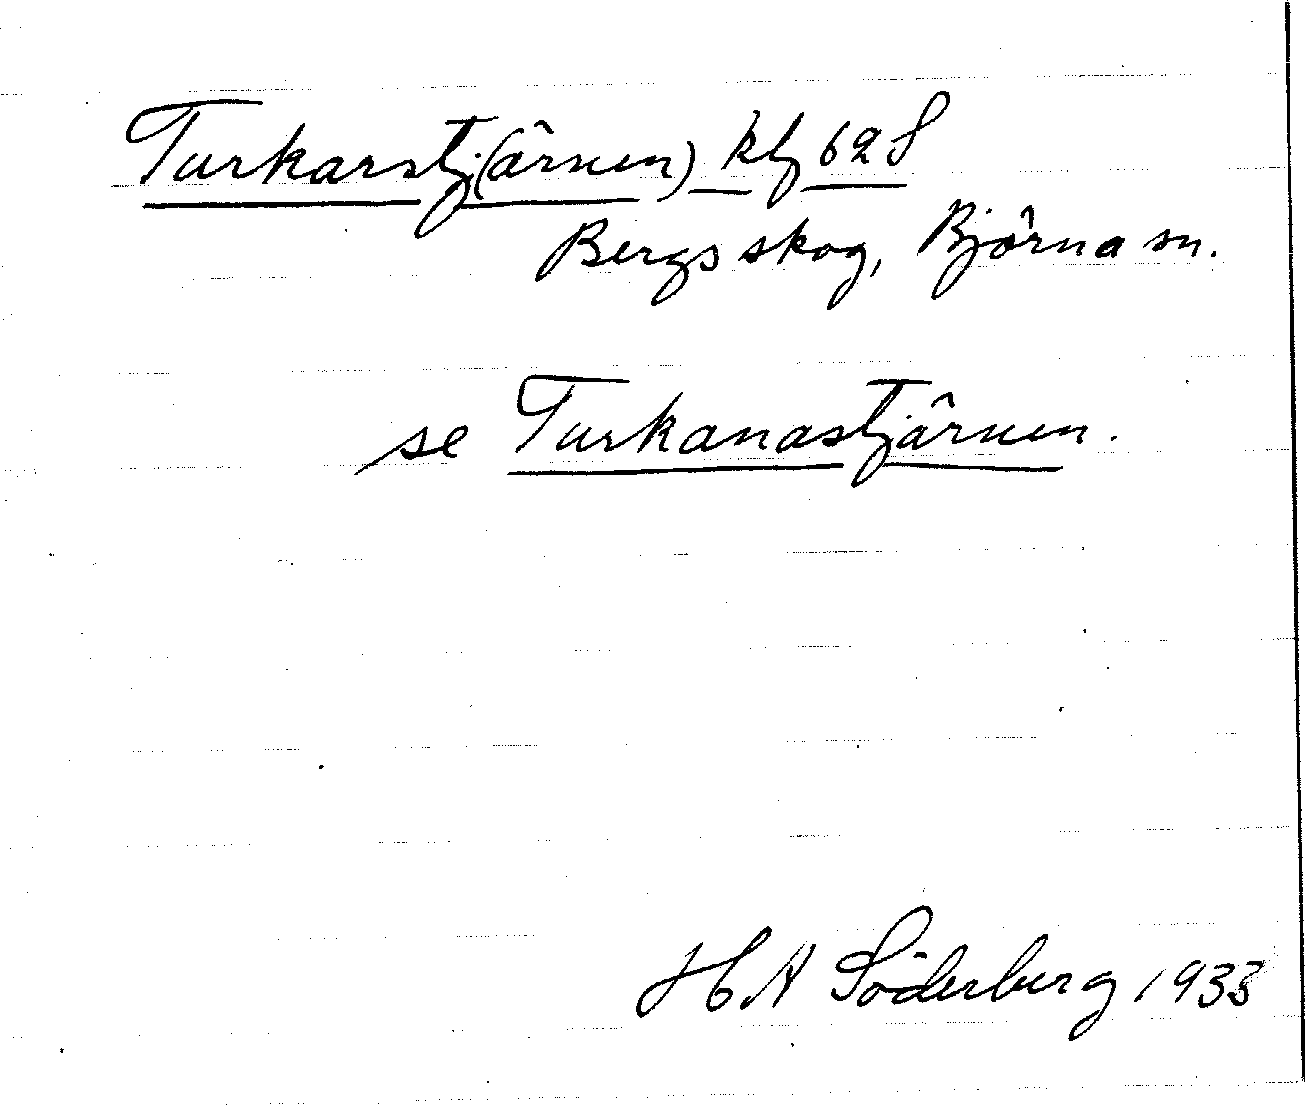 Turkarstj(ärnen) kbf 62 S
Bergsskog, Björna sn.
se Turkanastjärnen.
H A Söderberg 1933